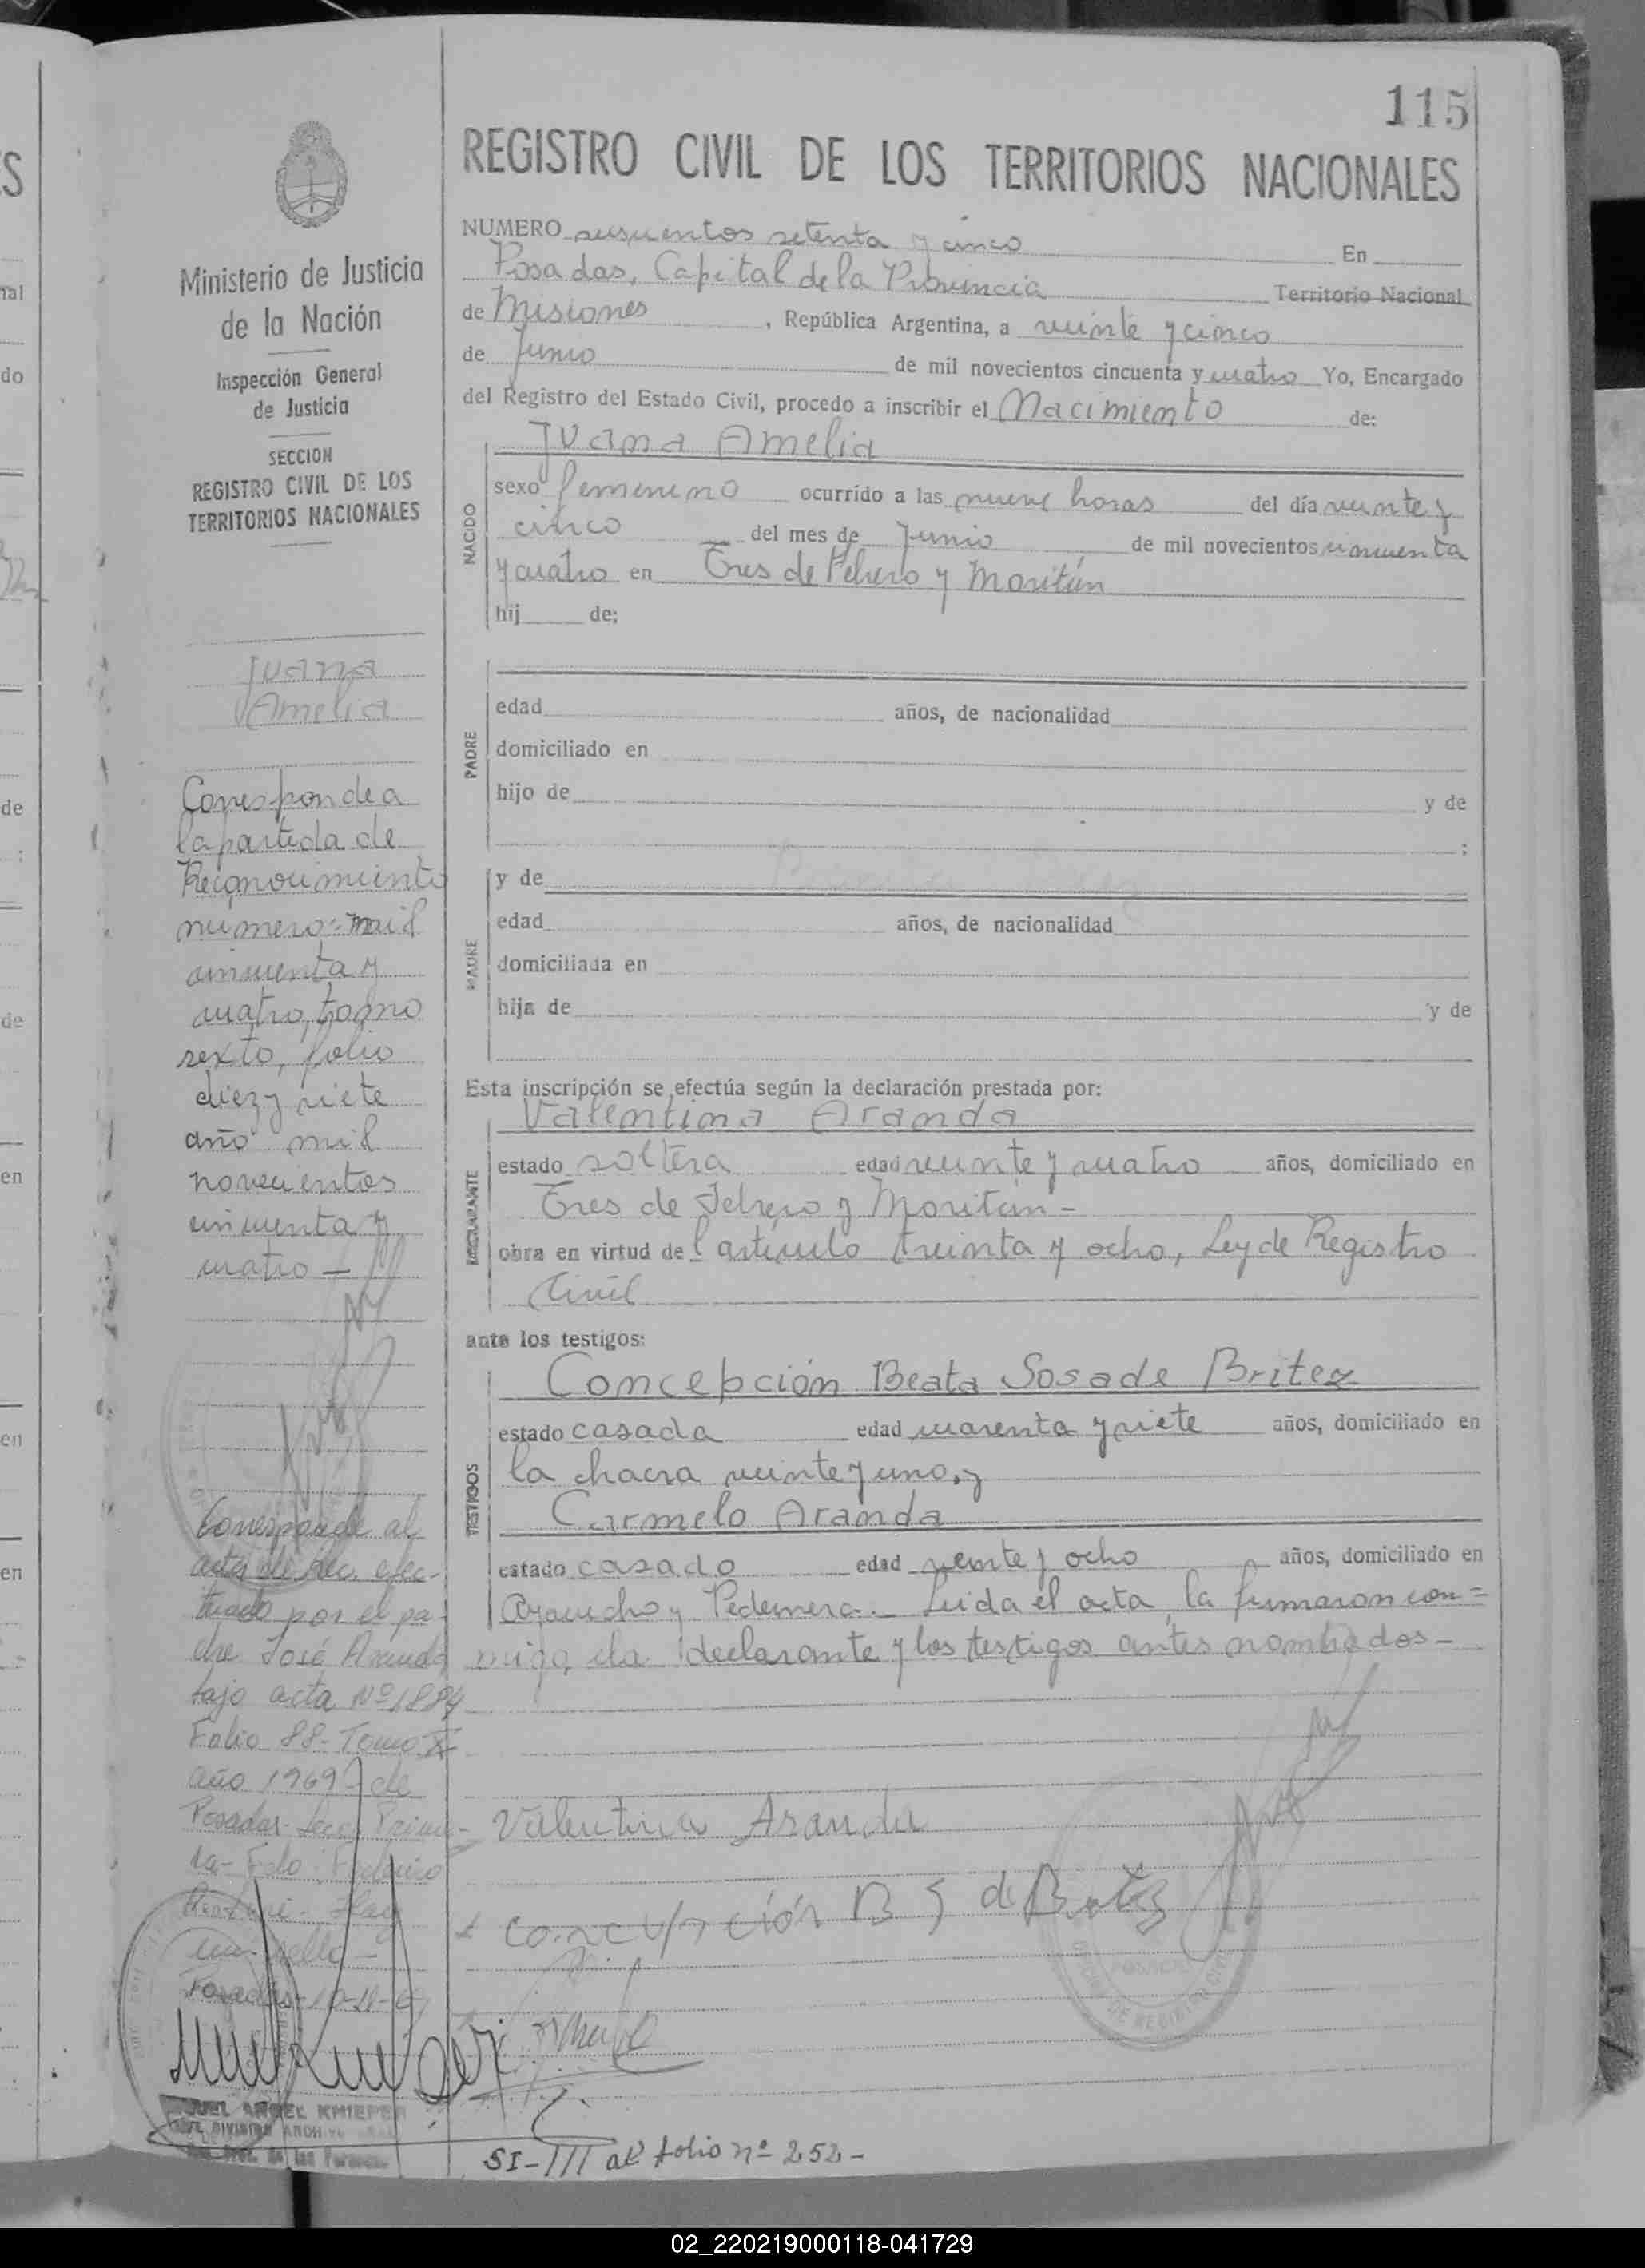 115
REGISTRO CIVIL DE LOS TERRITORIOS NACIONALES
NUMERO seiscientos setenta y cinco En
Posadas, Capital de la Provincia Territorio Nacional
de Misiones, República Argentina, a veinte y cinco
de Junio de mil novecientos cincuenta y cuatro Yo, Encargado
del Registro del Estado Civil, procedo a inscribir el Nacimiento de:
NACIDO
Juana Amelia
sexo femenino ocurrido a las nueve horas del día veinte y
cinco del mes de Junio de mil novecientos cincuenta
y cuatro en Tres de Febrero y Moritán
hij de;
PADRE
edad años, de nacionalidad
domiciliado en
hijo de y de
;
MADRE
y de
edad años, de nacionalidad
domiciliada en
hija de y de
Esta inscripción se efectúa según la declaración prestada por:
DECLARANTE
Valentina Aranda
estado soltera edad veinte y cuatro años, domiciliado en
Tres de Febrero y Moritán -
obra en virtud del artículo treinta y ocho, Ley de Registro
Civil
ante los testigos:
TESTIGOS
Concepción Beata Sosa de Britez
estado casada edad cuarenta y siete años, domiciliado en
la chacra veinte y uno, y
Carmelo Aranda
estado casado edad veinte y ocho años, domiciliado en
Ayacucho y Pedernera.- Leida el acta, la firmaron con=
migo la declarante y los testigos antes nombrados-
Valentina Aranda
Concepción B S de Britez
SI-III al folio nº 252-
Ministerio de Justicia
de la Nación
Inspección General
de Justicia
SECCION
REGISTRO CIVIL DE LOS
TERRITORIOS NACIONALES
Juana
Amelia
Corresponde a
la partida de
Reconocimiento
número: mil
cincuenta y
cuatro, tomo
sexto, folio
diez y siete
año mil
novecientos
cincuenta y
cuatro -
Corresponde al
acta de Rec. efec-
tuado por el pa-
dre José Aranda
bajo acta Nº 1884
Folio 88- Tomo X
año 1969- de
Posadas- Secc. Prime-
ra- Fdo: Federico
Hay
un sello-
Posadas-10-11-69
ANGEL KNIEPER
DIVISION ARCH
02_220219000118-041729